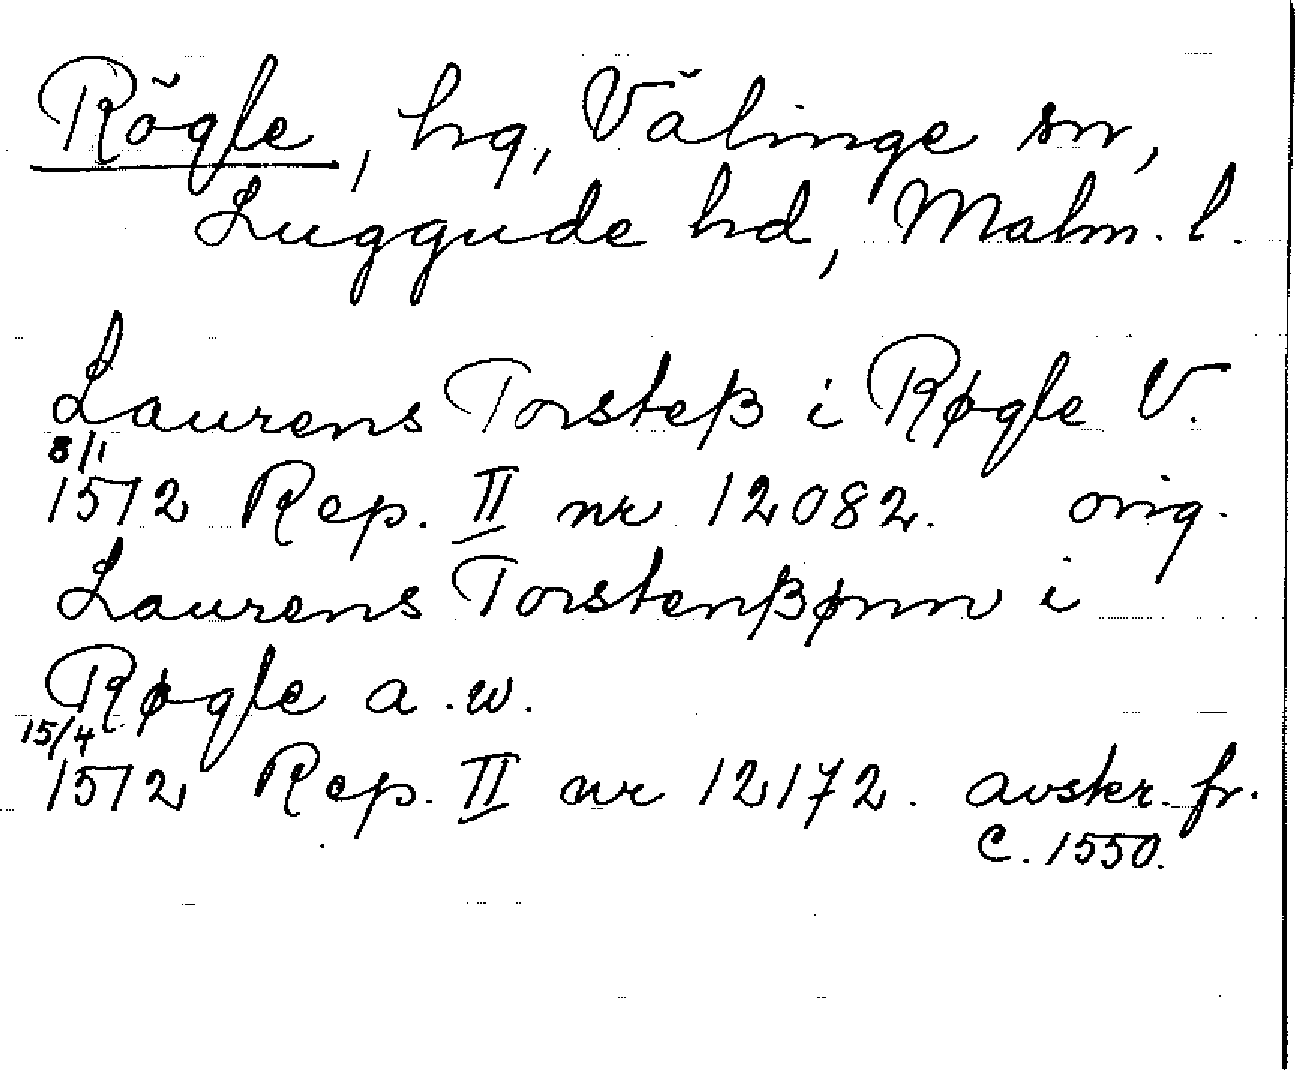 Rögle, hg, Välinge sn,
Luggude hd, Malm. l.
Laurens Torsteß i Røgle V.
8/1
1512 Rep. II nr 12082. orig.
Laurens Torstenßønn i
Røgle a.w.
15/4
1512 Rep. II nr 12172. avskr. fr.
c. 1550.